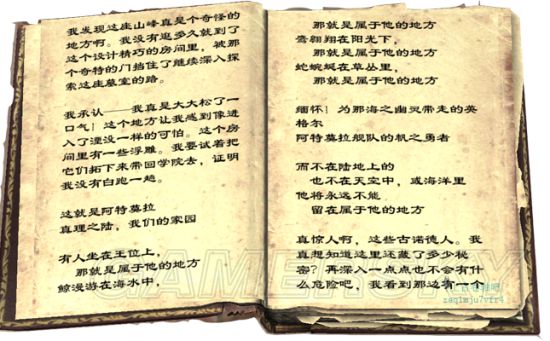 我发现这座山峰真是个奇怪的
地方啊。我没有逛多久就到了
这个设计精巧的房间里，被那
个奇特的门挡住了继续深入探
索这座墓室的路。
我承认——我真是大大松了一
口气！这个地方让我感到像进
入了湮没一样的可怕。这个房
间里有一些浮雕。我要试着把
它们拓下来带回学院去，证明
我没有白跑一趟。
这就是阿特莫拉
真理之陆，我们的家园
有人坐在王位上，
那就是属于他的地方
鲸漫游在海水中，
那就是属于他的地方
鹰翱翔在阳光下，
那就是属于他的地方
蛇蜿蜒在草丛里，
那就是属于他的地方
缅怀！为那海之幽灵带走的英
格尔
阿特莫拉舰队的帆之勇者
而不在陆地上的
也不在天空中，或海洋里
他将永远不能
留在属于他的地方
真惊人啊，这些古诺德人。我
真想知道这里还藏了多少秘
密？再深入一点点也不会有什
么危险吧，我看到那边有一个
GAMERSKY